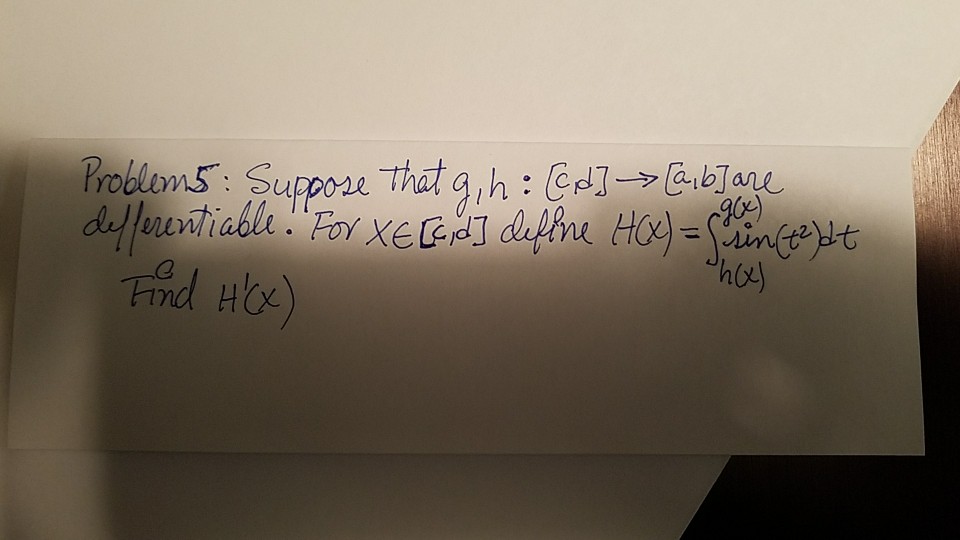 Problem 5: Suppose that g, h : [c,d] → [a,b] are
differentiable. For x ∈ [c,d] define H(x) = ∫_{h(x)}^{g(x)} sin(t²)dt
Find H'(x)